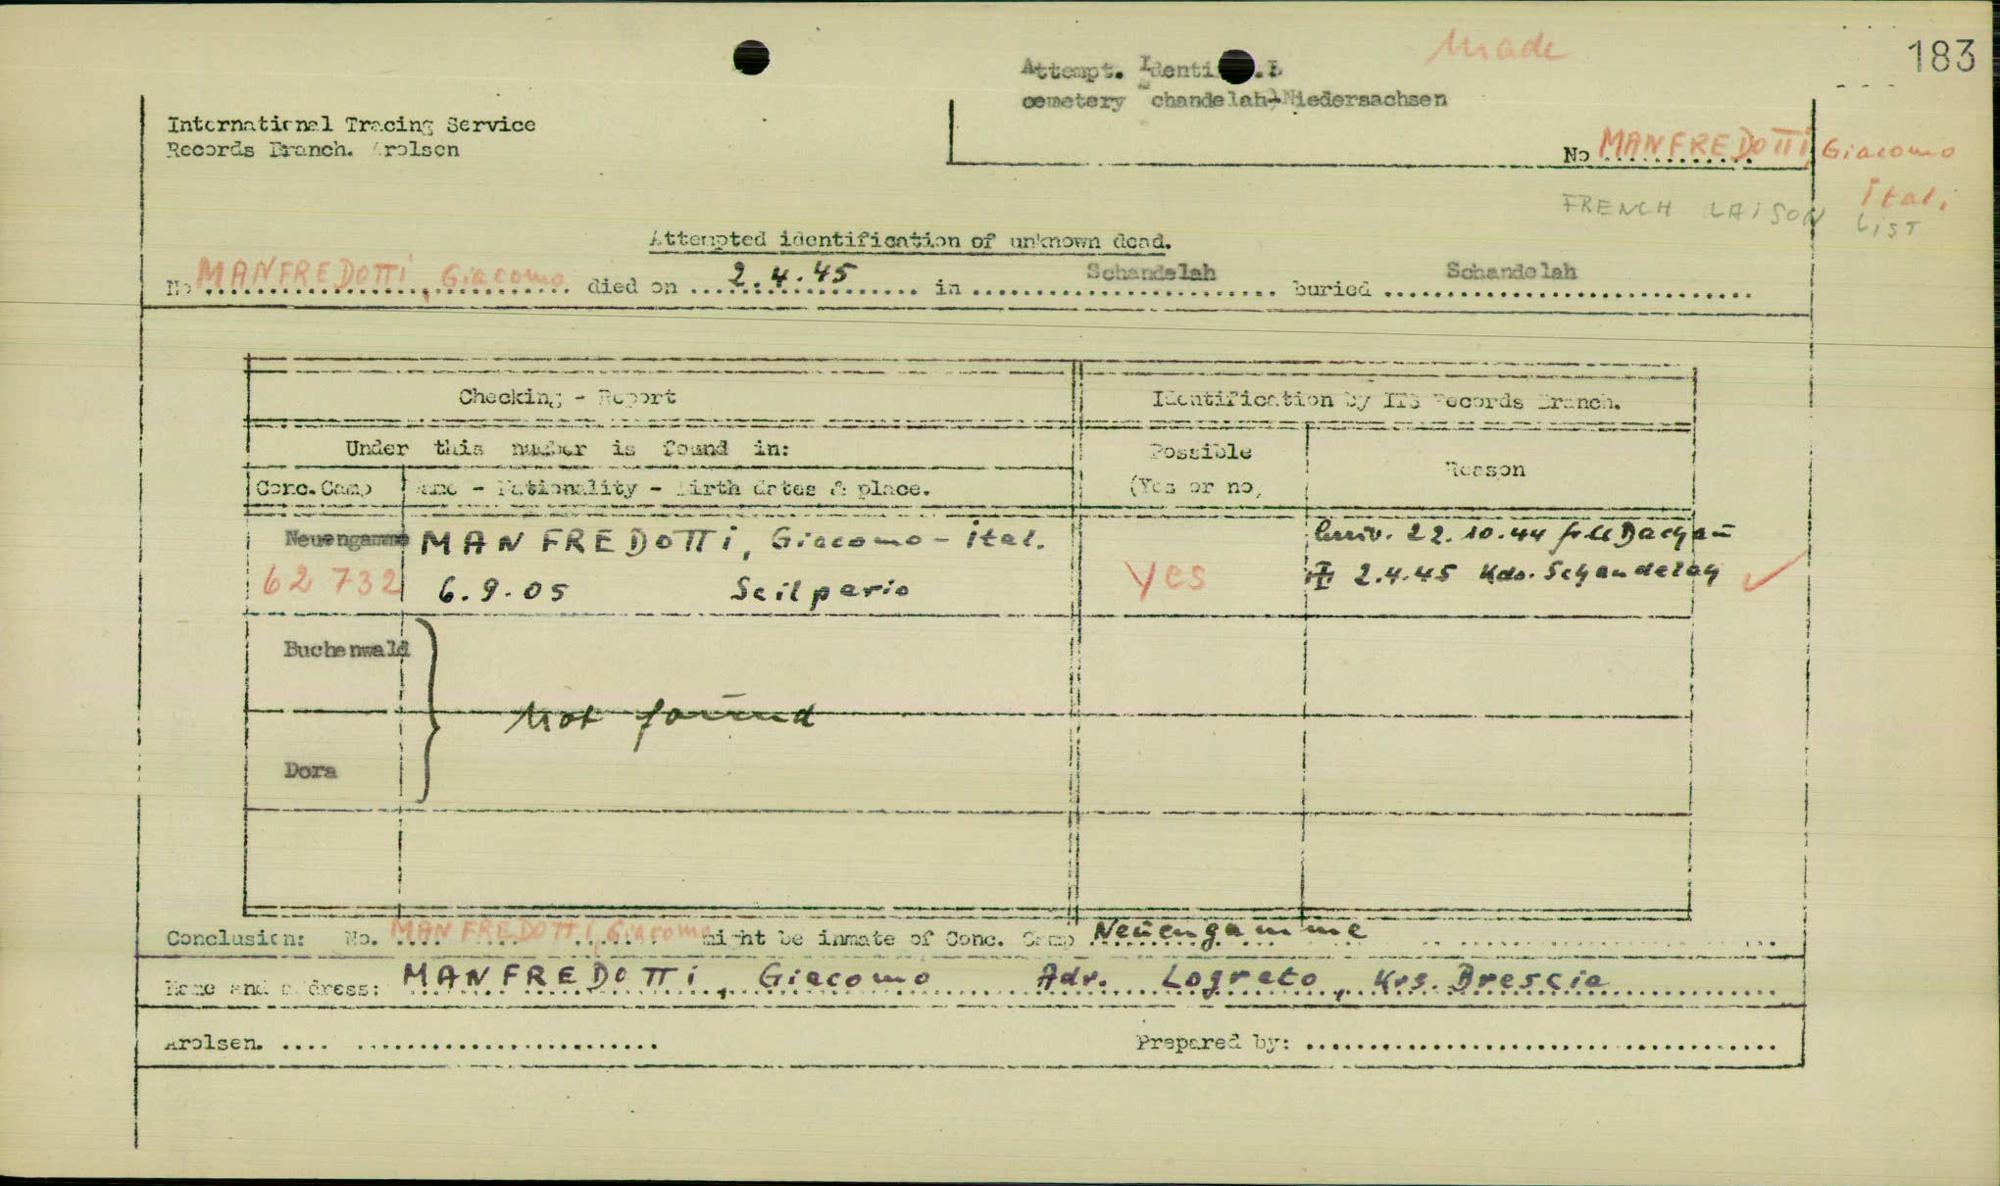 183
Made
Attempt. Identi . B
cemetery Schandelah, Niedersachsen
International Tracing Service
Records Branch. Arolsen
No MANFREDOTTI, Giacomo
Ital.
FRENCH LAISON LIST
Attempted identification of unknown dead.
No MANFREDOTTI, Giacomo died on 2.4.45 in Schandelah buried Schandelah
Checking - Report Identification by ITS Records Branch.
Under this number is found in: Possible Reason
Conc.Camp Name - Nationality - Birth dates & place. (Yes or no)
Neuengamme MANFREDOTTI, Giacomo - ital. 22.10.44 Dachau
62 732 6.9.05 Scilperio Yes 2.4.45 Kdo. Schandelah ✓
Buchenwald
Not found
Dora
Conclusion: No. MANFREDOTTI, Giacomo might be inmate of Conc. Camp Neuengamme
Name and address: MANFREDOTTI, Giacomo Adr. Lograto, Krs. Brescia
Arolsen. Prepared by: